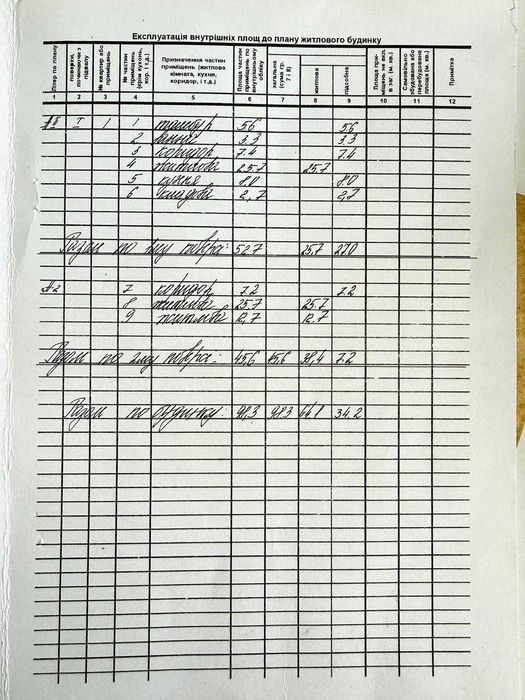 Експлуатація внутрішніх площ до плану житлового будинку
Літер по плану | поверхи, починаючи з підвалу | № квартир або приміщень | № частин приміщень (крім кухонь, кор. і т.д.) | Призначення частин приміщень (житлова кімната, кухня, коридор, і т.д.) | Площа частин приміщень по внутрішньому обліку | загальна (сума гр. 7 і 8) | житлова | підсобна | Площа приміщень не вкл. в заг. (м. кв.) | Самовільно збудована або перебудована площа (м. кв.) | Примітка
1 2 3 4 5 6 7 8 9 10 11 12
I 1 1 тамбур 5.6 5.6
2 3.3 3.3
3 коридор 7.4 7.4
4 житлова 25.7 25.7
5 кухня 8.0 8.0
6 кладова 2,7 2,7
Разом по 1му поверх: 52.7 25.7 27.0
7 коридор 7.2 7.2
8 житлова 25.7 25.7
9 житлова 12,7 12.7
Разом по 2му поверх: 45,6 45,6 38,4 7.2
Разом по будинку: 98,3 98.3 64.1 34.2